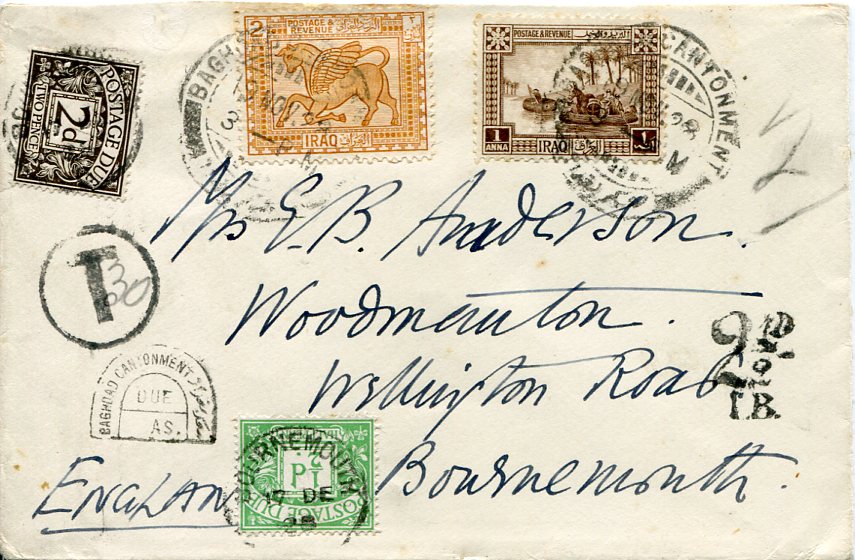 2 POSTAGE & REVENUE
IRAQ العراق
POSTAGE & REVENUE البريد والايراد
1 ANNA IRAQ العراق
BAGHDAD
CANTONMENT
POSTAGE DUE
2d.
TWO PENCE
2
Mrs E. B. Anderson.
Woodmanton.
Wellington Road
Bournemouth.
ENGLAND
T
30
2½D
I.B.
BAGHDAD CANTONMENT
DUE
AS.
BOURNEMOUTH
DE
28
POSTAGE DUE
½d.